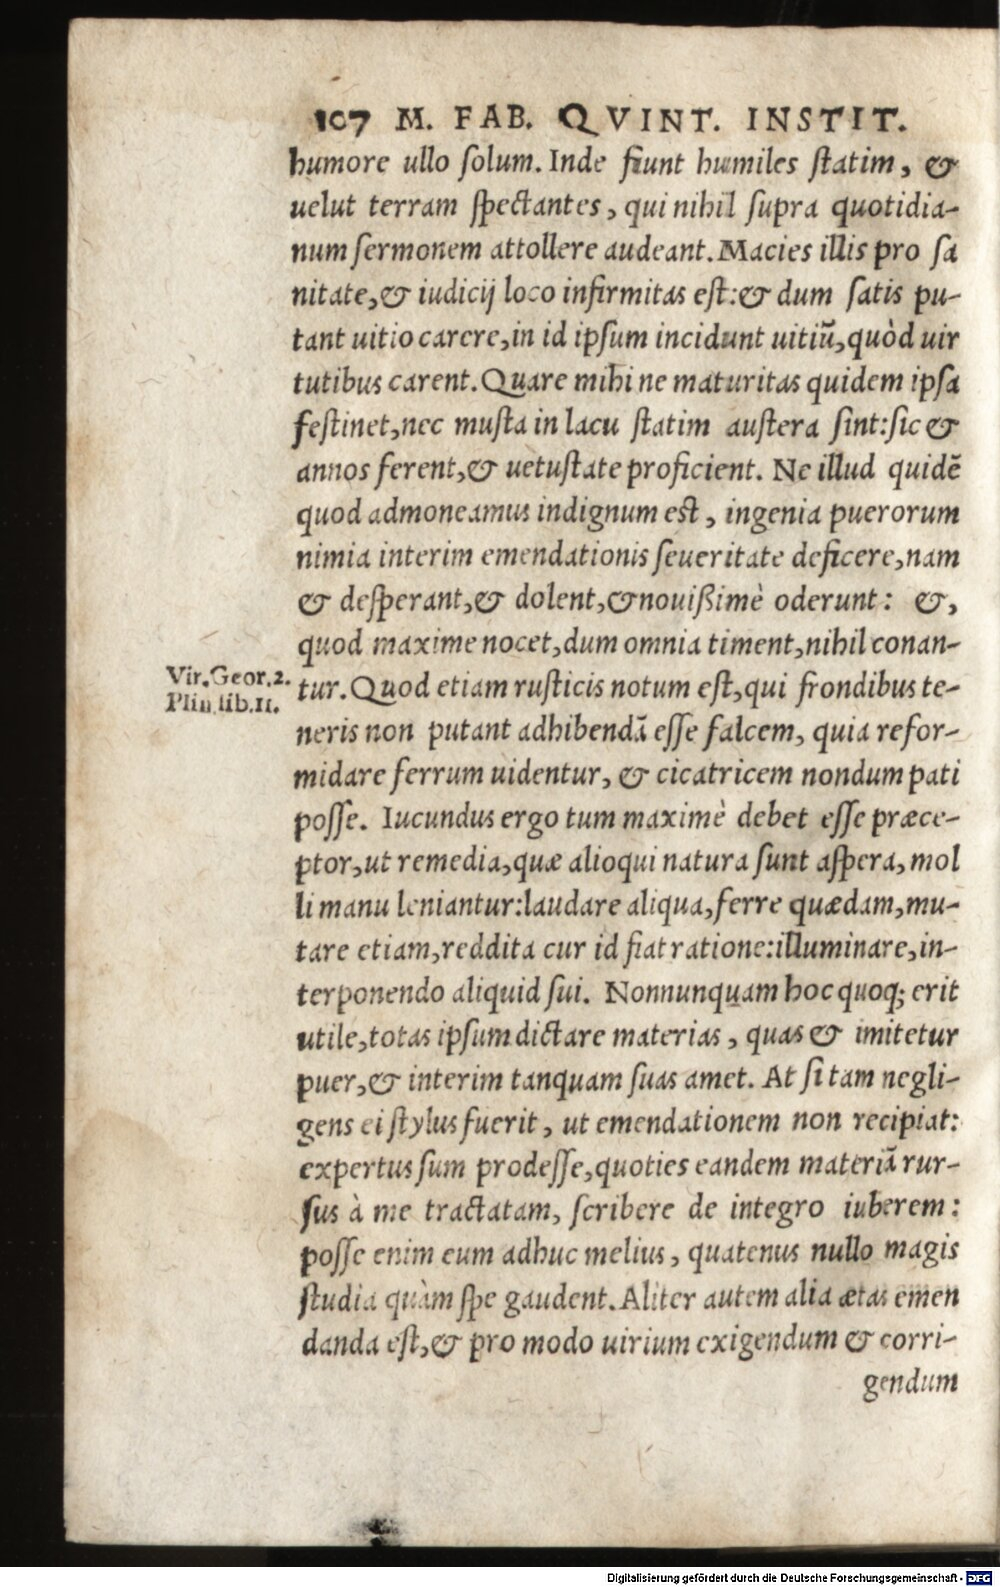 107 M. FAB. QVINT. INSTIT.
humore ullo ſolum. Inde fiunt humiles ſtatim, &
uelut terram ſpectantes, qui nihil ſupra quotidia-
num ſermonem attollere audeant. Macies illis pro ſa
nitate, & iudicij loco infirmitas eſt: & dum ſatis pu-
tant uitio carere, in id ipſum incidunt uitiũ, quòd uir
tutibus carent. Quare mihi ne maturitas quidem ipſa
feſtinet, nec muſta in lacu ſtatim auſtera ſint: ſic &
annos ferent, & uetuſtate proficient. Ne illud quidẽ
quod admoneamus indignum eſt, ingenia puerorum
nimia interim emendationis ſeueritate deficere, nam
& deſperant, & dolent, & nouißimè oderunt: &,
quod maxime nocet, dum omnia timent, nihil conan-
Vir. Geor. 2.
Plin. lib. 11.
tur. Quod etiam ruſticis notum eſt, qui frondibus te-
neris non putant adhibendã eſſe falcem, quia refor-
midare ferrum uidentur, & cicatricem nondum pati
poſſe. Iucundus ergo tum maximè debet eſſe præce-
ptor, ut remedia, quæ alioqui natura ſunt aſpera, mol
li manu leniantur: laudare aliqua, ferre quædam, mu-
tare etiam, reddita cur id fiat ratione: illuminare, in-
terponendo aliquid ſui. Nonnunquam hoc quoq; erit
utile, totas ipſum dictare materias, quas & imitetur
puer, & interim tanquam ſuas amet. At ſi tam negli-
gens ei ſtylus fuerit, ut emendationem non recipiat:
expertus ſum prodeſſe, quoties eandem materiã rur-
ſus à me tractatam, ſcribere de integro iuberem:
poſſe enim eum adhuc melius, quatenus nullo magis
ſtudia quàm ſpe gaudent. Aliter autem alia ætas emen
danda eſt, & pro modo uirium exigendum & corri-
gendum
Digitalisierung gefördert durch die Deutsche Forschungsgemeinschaft - DFG